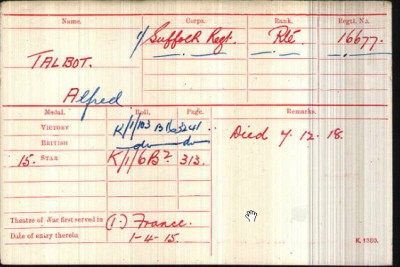 Name. Corps. Rank. Regtl. No.
1/ Suffolk Regt. Pte. 16677.
TALBOT.
Alfred
Medal. Roll. Page. Remarks.
VICTORY K/1/103 2241
BRITISH do do
15. STAR K/1/6B2 313. Died 7.12.18.
Theatre of War first served in (1.) France.
Date of entry therein 1-4-15.
K. 1380.